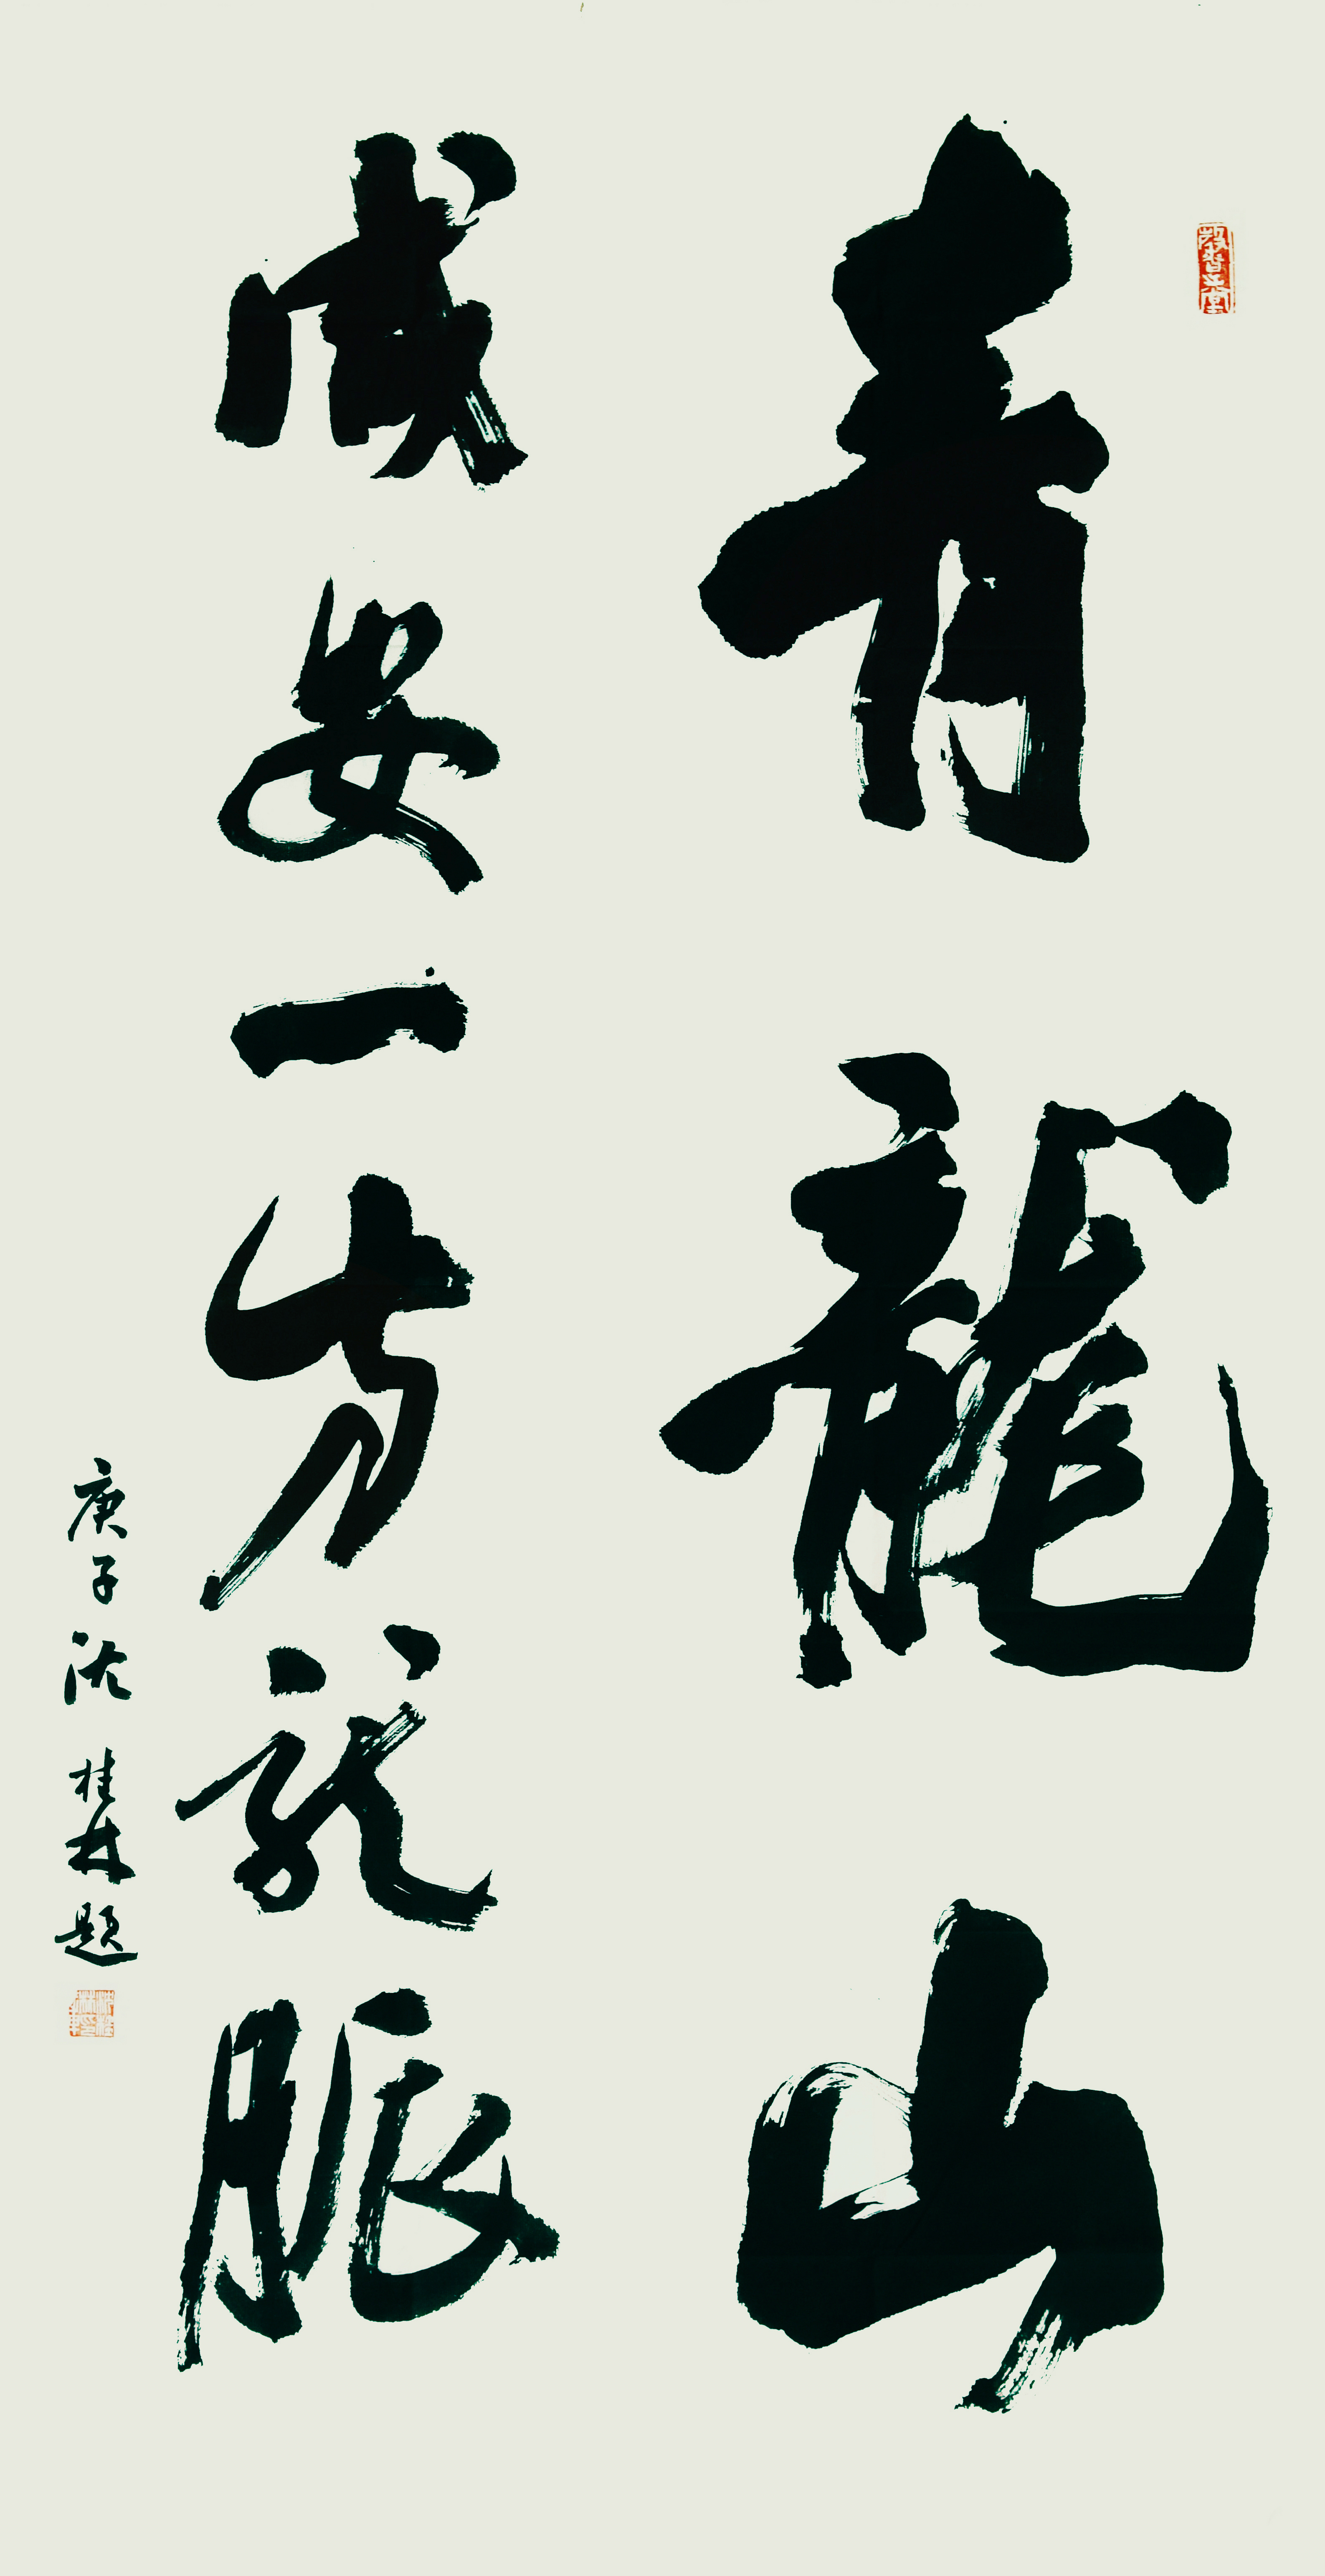 青龍山
成安一方龙脈
庚子沈桂林题